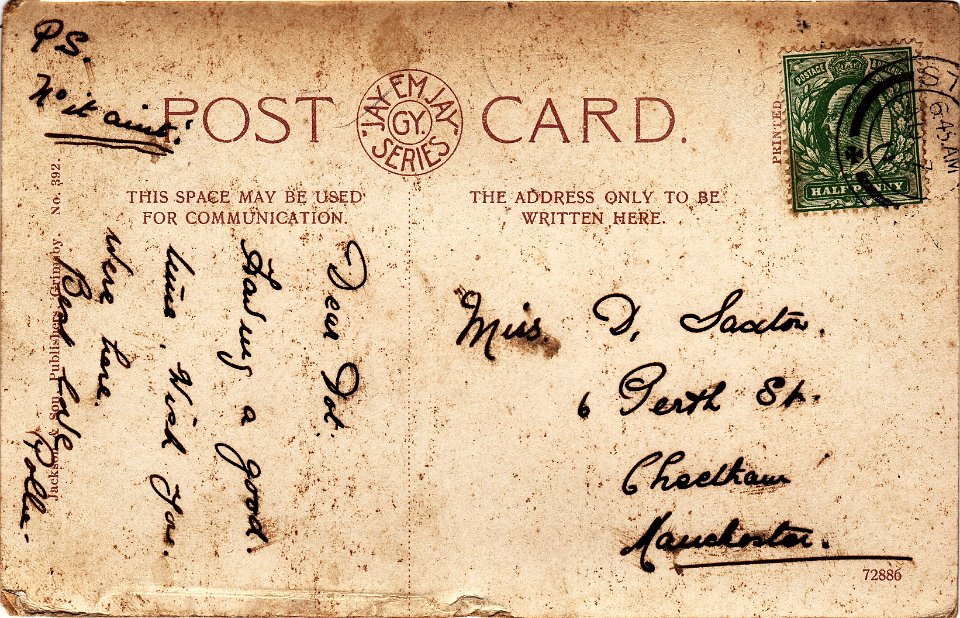 P.S.
No it aint!
POST CARD.
JAY EM JAY
GY.
SERIES
THIS SPACE MAY BE USED
FOR COMMUNICATION.
THE ADDRESS ONLY TO BE
WRITTEN HERE.
PRINTED
POSTAGE
HALF PENNY
6.45 AM
Dear Dot.
Having a good.
time, Wish you.
where here.
Best love
Pollie.
Miss. D. Saxton.
6 Perth St.
Cheetham
Manchester.
Jackson & Son, Publishers, Grimsby No. 392.
72886